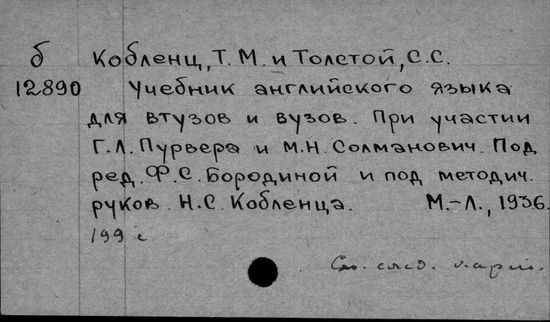 б Кобленц, Т. М. и Толстой, С. С.
12890 Учебник английского языка
для втузов и вузов. При участии
Г. Л. Пурвера и М. Н. Солманович. Под
ред. Ф. С. Бородиной и под методич.
руков. Н. С. Кобленца. М.-Л., 1936.
199 с
См. след. карт.